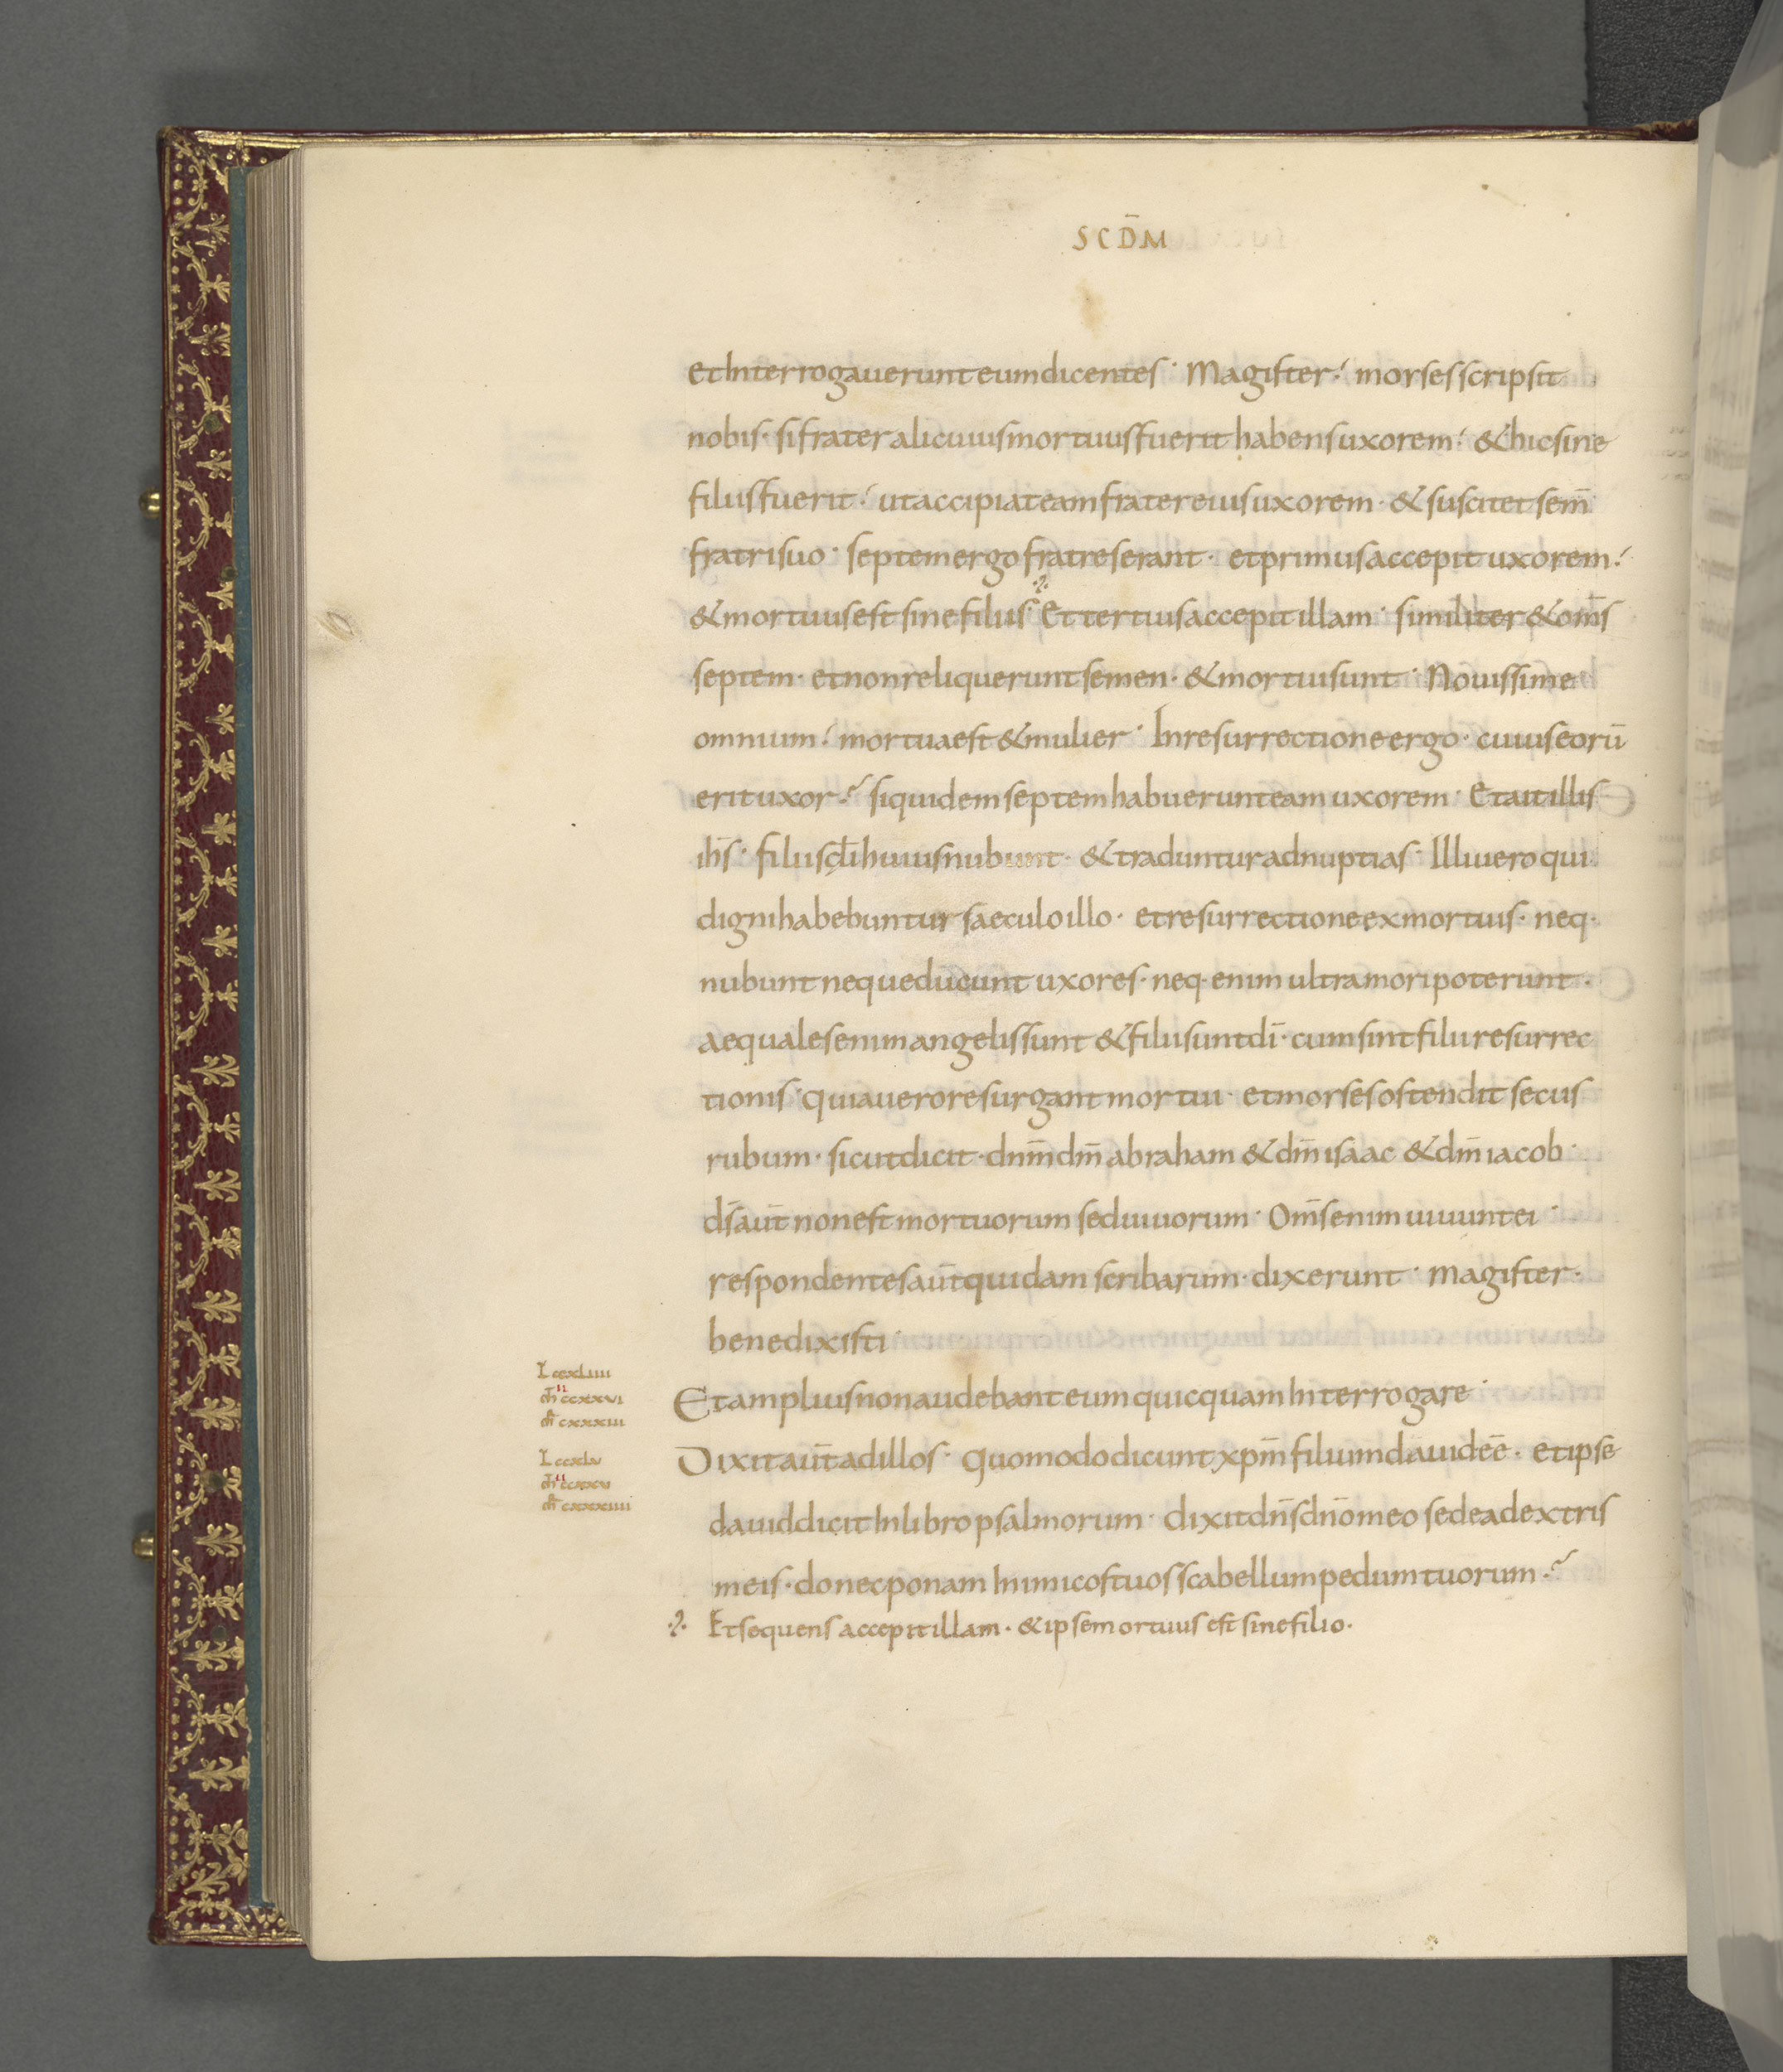 SCD̄M
et Interrogauerunt eum dicentes · Magister · morses scripsit
nobis · si frater alicuius mortuus fuerit habens uxorem · & hic sine
filiis fuerit · ut accipiat eam frater eius uxorem · & suscitet sem̄
fratri suo · septem ergo fratres erant · et primus accepit uxorem ·
& mortuus est sine filiis · Et tertius accepit illam · similiter & om̄s
septem · et non reliquerunt semen · & mortui sunt · Nouissime
omnium · mortua est & mulier · In resurrectione ergo · cuius eorū
erit uxor · siquidem septem habuerunt eam uxorem · Et ait illis
ih̄s · filii sc̄li huius nubunt · & traduntur ad nuptias · Illi uero qui
digni habebuntur saeculo illo · et resurrectione ex mortuis · neq·
nubunt neque ducunt uxores · neq· enim ultra mori poterunt ·
aequales enim angelis sunt & filii sunt dī · cum sint filii resurrec
tionis · quia uero resurgant mortui · et morses ostendit secus
rubum · sicut dicit · dnm̄ dm̄ abraham & dm̄ isaac & dm̄ iacob ·
ds̄ aūt non est mortuorum sed uiuorum · Om̄s enim uiuunt ei ·
respondentes aūt quidam scribarum · dixerunt · magister ·
bene dixisti ·
L ccxLiiii
m̄ ccxxvi
m̄ cxxxiii
Et amplius non audebant eum quicquam Interrogare ·
L ccxLv
m̄ ccxxv
m̄ cxxxiiii
Dixit aūt ad illos · quomodo dicunt xpm̄ filium dauid eē · et ipse
dauid dicit In libro psalmorum · dixit dn̄s dn̄o meo sede a dextris
meis · donec ponam Inimicos tuos scabellum pedum tuorum ·
Et sequens accepit illam · & ipse mortuus est sine filio ·